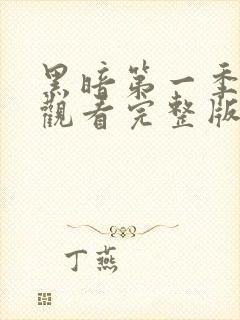 黑暗第一季
觀看完整版
丁燕